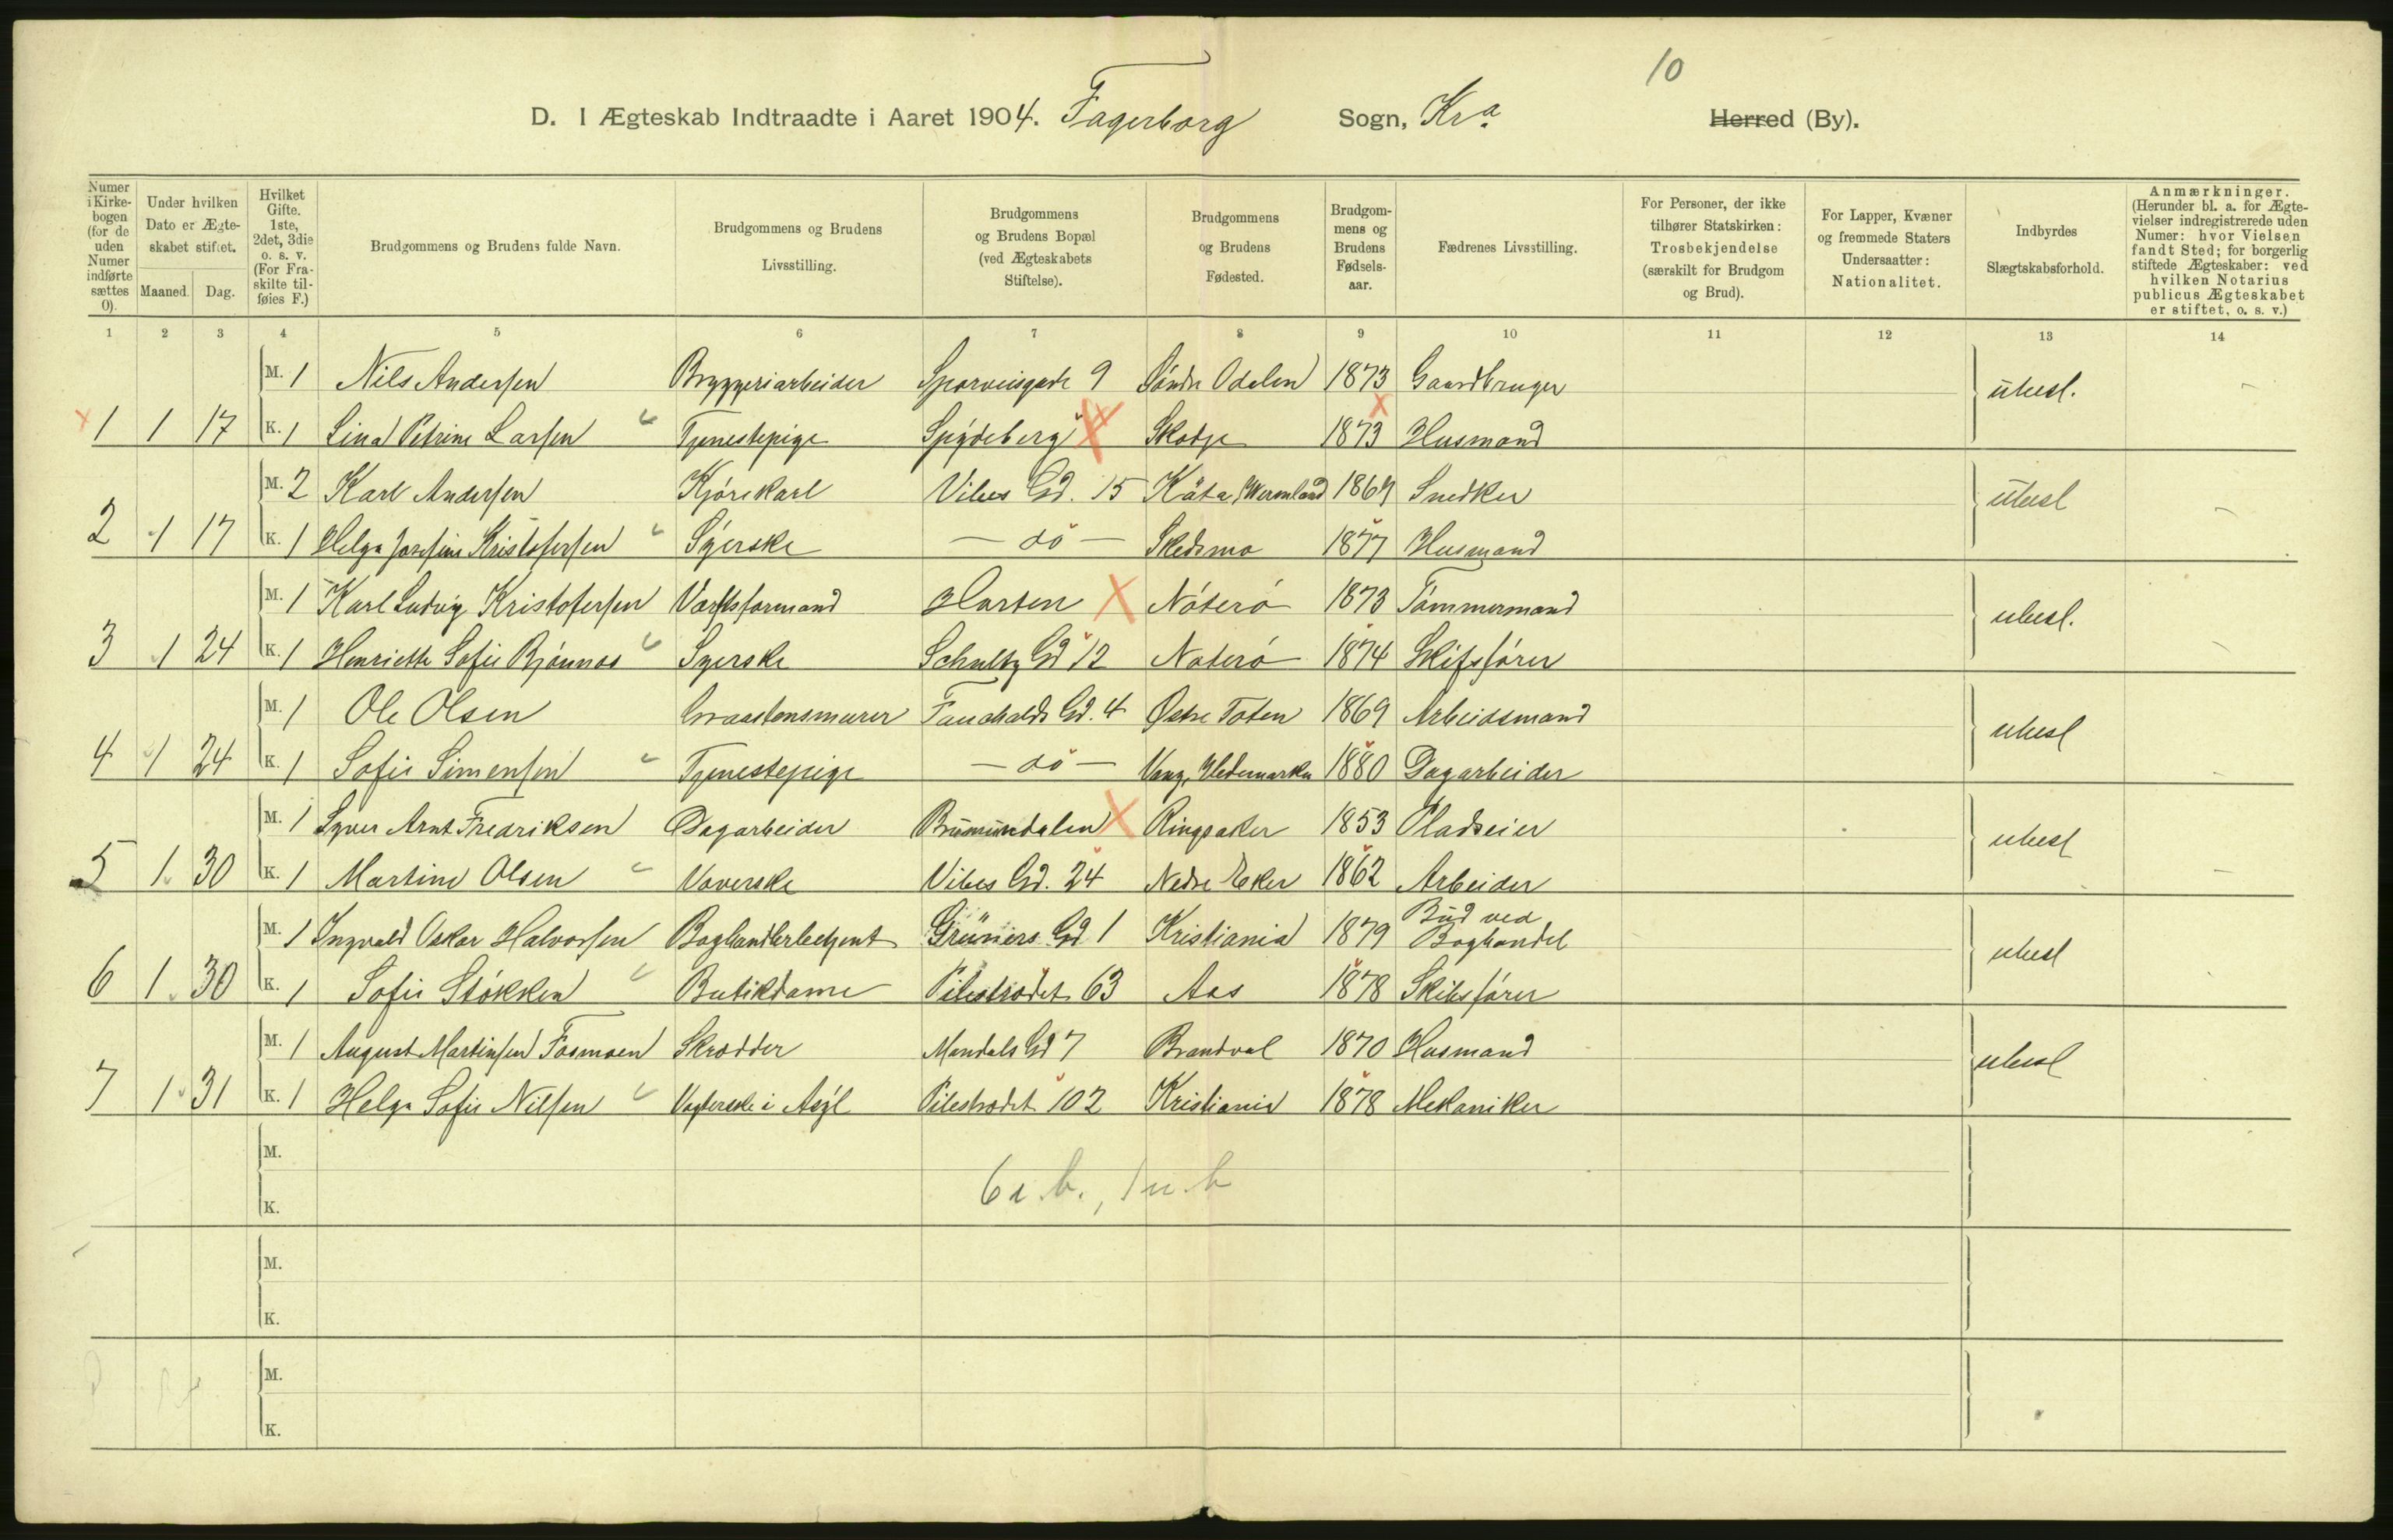 10
D. I Ægteskab Indtraadte i Aaret 1904. Fagerborg Sogn, Kra. Herred (By).
Numer i Kirkebogen (for de uden Numer indførte sættes 0).
Under hvilken Dato er Ægteskabet stiftet.
Maaned. Dag.
Hvilket Gifte. 1ste, 2det, 3die o. s. v. (For Fraskilte tilføies F.)
Brudgommens og Brudens fulde Navn.
Brudgommens og Brudens Livsstilling.
Brudgommens og Brudens Bopæl (ved Ægteskabets Stiftelse).
Brudgommens og Brudens Fødested.
Brudgommens og Brudens Fødselsaar.
Fædrenes Livsstilling.
For Personer, der ikke tilhører Statskirken: Trosbekjendelse (særskilt for Brudgom og Brud).
For Lapper, Kvæner og fremmede Staters Undersaatter: Nationalitet.
Indbyrdes Slægtskabsforhold.
Anmærkninger. (Herunder bl. a. for Ægtevielser indregistrerede uden Numer: hvor Vielsen fandt Sted; for borgerlig stiftede Ægteskaber: ved hvilken Notarius publicus Ægteskabet er stiftet, o. s. v.)
1 2 3 4 5 6 7 8 9 10 11 12 13 14
M. 1 Nils Andersen Bryggeriarbeider Sporveisgade 9 Søndre Odalen 1873 Gaardbruger ubesl.
1 1 17 K. 1 Lina Petrine Larsen Tjenestepige Spydeberg Skodje 1873 Husmand
M. 2 Karl Andersen Kjørekarl Vibes Gd. 15 Wermland 1869 Snedker ubesl
2 1 17 K. 1 Helga Josefine Kristofersen Syerske — do — Skedsmo 1877 Husmand
M. 1 Karl Ludvig Kristofersen Værftsformand Horten Nøterø 1873 Tømmermand ubesl.
3 1 24 K. 1 Henriette Sofie Bjønnes Syerske Schultz Gd 12 Nøterø 1874 Skibsfører
M. 1 Ole Olsen Graastensmurer Fauchalds Gd. 4 Østre Toten 1869 Arbeidsmand ubesl
4 1 24 K. 1 Sofie Simensen Tjenestepige — do — Vang, Hedemarken 1880 Dagarbeider
M. 1 Syver Arnt Fredriksen Dagarbeider Brumunddalen Ringsaker 1853 Pladseier ubesl
5 1 30 K. 1 Martine Olsen Væverske Vibes Gd. 24 Nedre Eker 1862 Arbeider
M. 1 Ingvald Oskar Halvorsen Boghandlerbetjent Grüners Gd 1 Kristiania 1879 Bud ved Boghandel ubesl
6 1 30 K. 1 Sofie Støkken Butikdame Pilestrædet 63 Aas 1878 Skibsfører
M. 1 August Martinsen Fosmoen Skrædder Mandals Gd 7 Brandval 1870 Husmand ubesl
7 1 31 K. 1 Helga Sofie Nilsen Vogterske i Asyl Pilestrædet 102 Kristiania 1878 Mekaniker
M.
6 i. b., 1 u. b
K.
M.
K.
M.
K.